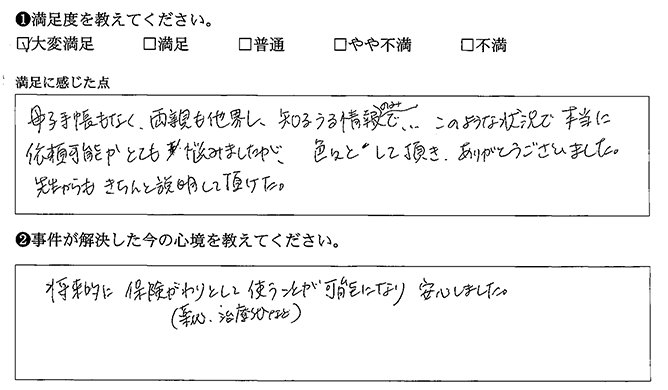 ❶満足度を教えてください。
☑大変満足 □満足 □普通 □やや不満 □不満
満足に感じた点
母子手帳もなく、両親も他界し、知りうる情報のみで、、このような状況で本当に
依頼可能かとても悩みましたが、色々として頂き、ありがとうございました。
先生からもきちんと説明して頂けた。
❷事件が解決した今の心境を教えてください。
将来的に保険がわりとして使うことが可能になり安心しました。
(薬代、治療代など)